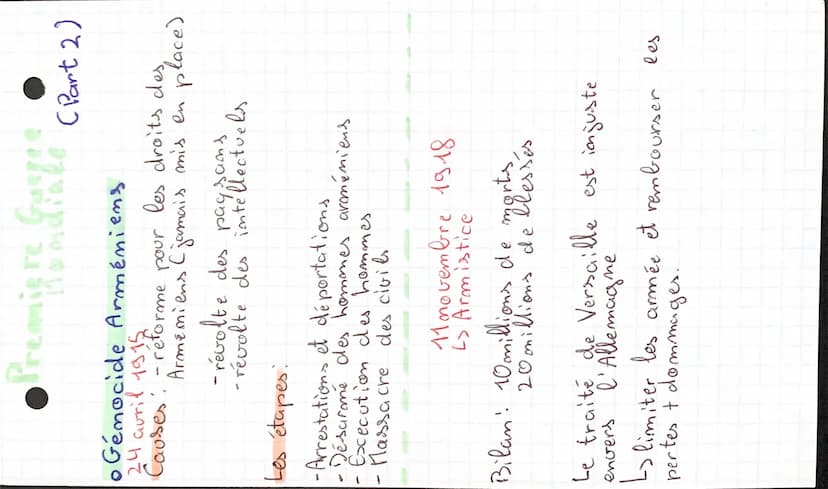 Première Guerre
Mondiale
(Part 2)
Génocide Arméniens
24 avril 1915
Causes: - réforme pour les droits des
Arméniens (jamais mis en place)
- révolte des paysans
- révolte des intellectuels
Les étapes:
- Arrestations et déportations
- Désarmé des hommes arméniens
- Execution des hommes
- Massacre des civils
11 novembre 1918
↳ Armistice
Bilan: 10 millions de morts
20 millions de blessés
Le traité de Versaille est injuste
envers l'Allemagne
↳ limiter les armée et rembourser les
pertes + dommages.